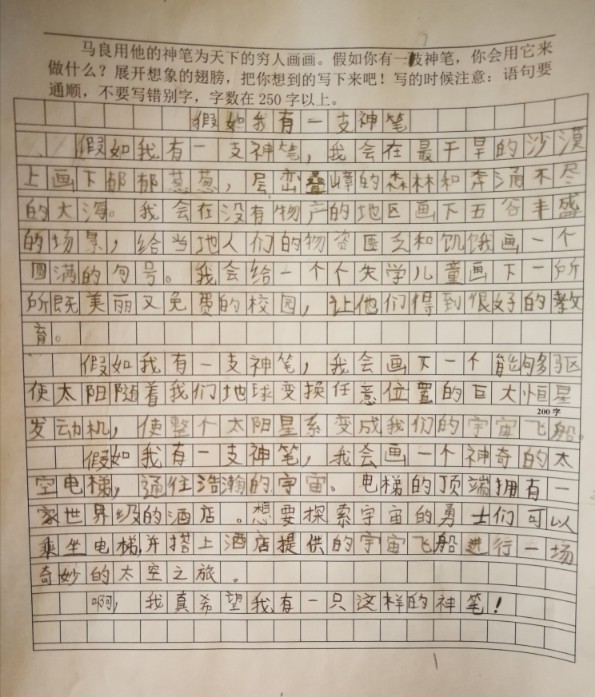 马良用他的神笔为天下的穷人画画。假如你有一枝神笔，你会用它来
做什么？展开想象的翅膀，把你想到的写下来吧！写的时候注意：语句要
通顺，不要写错别字，字数在250字以上。
假如我有一支神笔
假如我有一支神笔，我会在最干旱的沙漠
上画下郁郁葱葱，层峦叠嶂的森林和奔涌不尽
的大海。我会在没有物产的地区画下五谷丰盛
的场景，给当地人们的物资匮乏和饥饿画一个
圆满的句号。我会给一个个失学儿童画下一所
所既美丽又免费的校园，让他们得到很好的教
育。
假如我有一支神笔，我会画下一个能够驱
使太阳随着我们地球变换任意位置的巨大恒星
200字
发动机，使整个太阳星系变成我们的宇宙飞船。
假如我有一支神笔，我会画一个神奇的太
空电梯，通往浩瀚的宇宙。电梯的顶端拥有一
家世界级的酒店。想要探索宇宙的勇士们可以
乘坐电梯并搭上酒店提供的宇宙飞船进行一场
奇妙的太空之旅。
啊，我真希望我有一只这样的神笔！